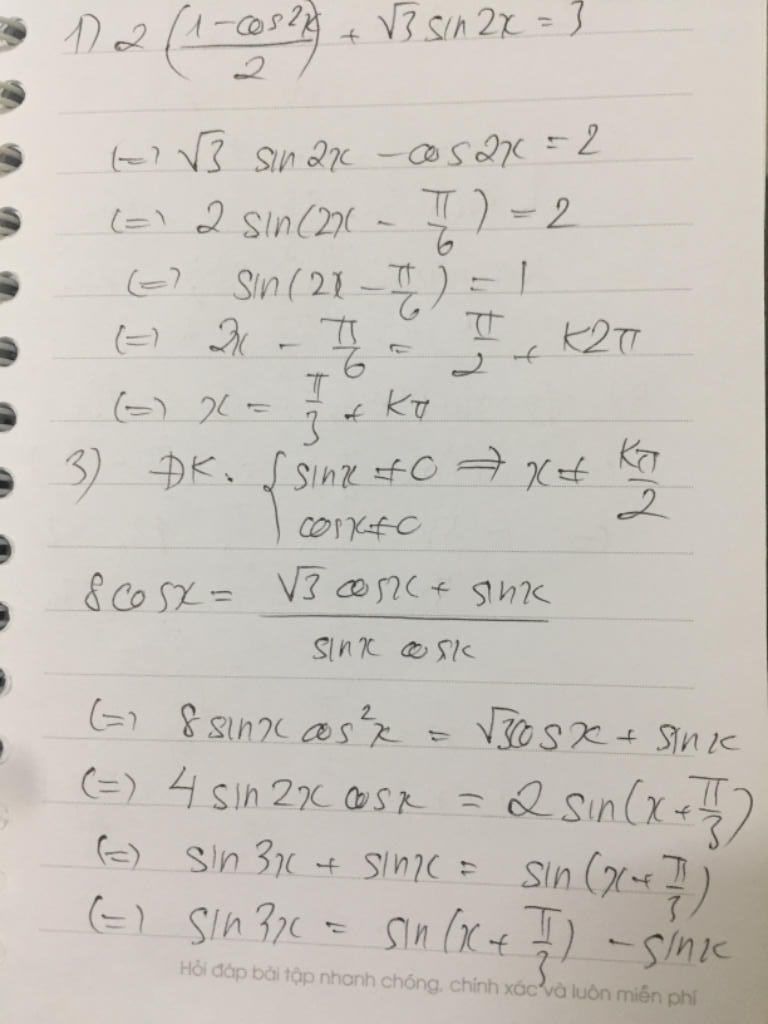 1) 2 (1-cos2x / 2) + √3 sin2x = 3
(=) √3 sin2x - cos2x = 2
(=) 2 sin(2x - π/6) = 2
(=) sin(2x - π/6) = 1
(=) 2x - π/6 = π/2 + K2π
(=) x = π/3 + Kπ
3) ĐK. { sinx ≠ 0 => x ≠ Kπ/2
cosx ≠ 0
8cosx = (√3 cosx + sinx) / (sinx cosx)
(=) 8 sinx cos²x = √3cosx + sinx
(=) 4 sin2x cosx = 2 sin(x + π/3)
(=) sin3x + sinx = sin(x + π/3)
(=) sin3x = sin(x + π/3) - sinx
Hỏi đáp bài tập nhanh chóng, chính xác và luôn miễn phí